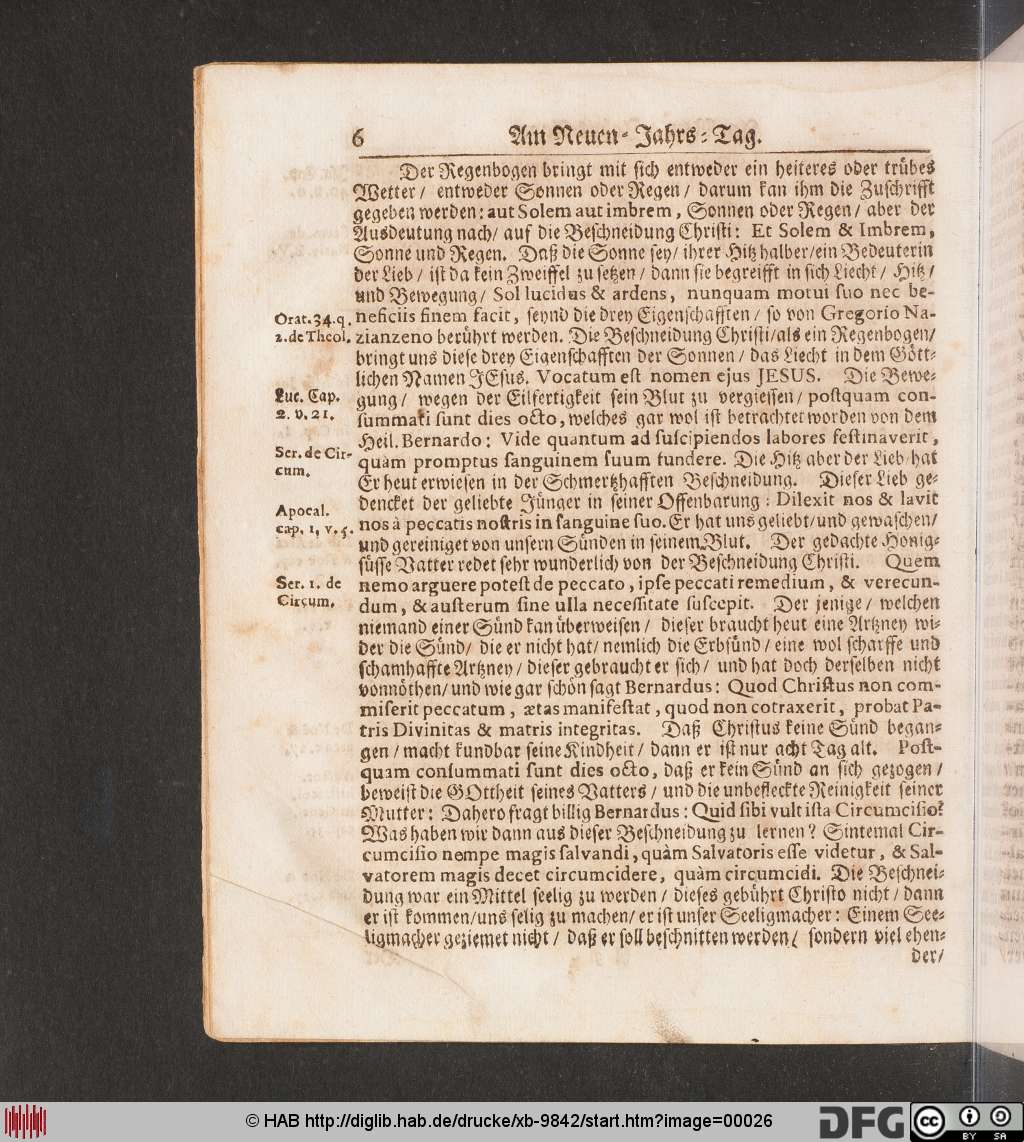 6 Am Neuen-Jahrs-Tag.
Der Regenbogen bringt mit sich entweder ein heiteres oder trübes
Wetter/ entweder Sonnen oder Regen/ darum kan ihm die Zuschrifft
gegeben werden: aut Solem aut imbrem, Sonnen oder Regen/ aber der
Ausdeutung nach/ auf die Beschneidung Christi: Et Solem & Imbrem,
Sonne und Regen. Daß die Sonne sey/ ihrer Hitz halber/ein Bedeuterin
der Lieb/ ist da kein Zweiffel zu setzen/ dann sie begreifft in sich Liecht/ Hitz/
und Bewegung/ Sol lucidus & ardens, nunquam motui suo nec be-
neficiis finem facit, seynd die drey Eigenschafften/ so von Gregorio Na-
zianzeno berührt werden. Die Beschneidung Christi/als ein Regenbogen/
bringt uns diese drey Eigenschafften der Sonnen/ das Liecht in dem Gött-
lichen Namen JEsus. Vocatum est nomen ejus JESUS. Die Bewe-
gung/ wegen der Eilfertigkeit sein Blut zu vergiessen/ postquam con-
summati sunt dies octo, welches gar wol ist betrachtet worden von dem
Heil. Bernardo: Vide quantum ad suscipiendos labores festinaverit,
quàm promptus sanguinem suum fundere. Die Hitz aber der Lieb/hat
Er heut erwiesen in der Schmertzhafften Beschneidung. Dieser Lieb ge-
dencket der geliebte Jünger in seiner Offenbarung: Dilexit nos & lavit
nos à peccatis nostris in sanguine suo. Er hat uns geliebt/und gewaschen/
und gereiniget von unsern Sünden in seinem Blut. Der gedachte Honig-
süsse Vatter redet sehr wunderlich von der Beschneidung Christi. Quem
nemo arguere potest de peccato, ipse peccati remedium, & verecun-
dum, & austerum sine ulla necessitate suscepit. Der jenige/ welchen
niemand einer Sünd kan überweisen/ dieser braucht heut eine Artzney wi-
der die Sünd/ die er nicht hat/ nemlich die Erbsünd/ eine wol scharffe und
schamhaffte Artzney/ dieser gebraucht er sich/ und hat doch derselben nicht
vonnöthen/ und wie gar schön sagt Bernardus: Quod Christus non com-
miserit peccatum, ætas manifestat, quod non cotraxerit, probat Pa-
tris Divinitas & matris integritas. Daß Christus keine Sünd began-
gen/ macht kundbar seine Kindheit/ dann er ist nur acht Tag alt. Post-
quam consummati sunt dies octo, daß er kein Sünd an sich gezogen/
beweist die GOttheit seines Vatters/ und die unbefleckte Reinigkeit seiner
Mutter: Dahero fragt billig Bernardus: Quid sibi vult ista Circumcisio?
Was haben wir dann aus dieser Beschneidung zu lernen? Sintemal Cir-
cumcisio nempe magis salvandi, quàm Salvatoris esse videtur, & Sal-
vatorem magis decet circumcidere, quàm circumcidi. Die Beschnei-
dung war ein Mittel seelig zu werden/ dieses gebührt Christo nicht/ dann
er ist kommen/uns selig zu machen/ er ist unser Seeligmacher: Einem See-
ligmacher geziemet nicht/ daß er soll beschnitten werden/ sondern viel ehen-
der/
Orat. 34. q.
2. de Theol.
Luc. Cap.
2. v. 21.
Ser. de Cir-
cum.
Apocal.
cap. 1, v. 5.
Ser. 1. de
Circum.
© HAB http://diglib.hab.de/drucke/xb-9842/start.htm?image=00026
DFG
cc
BY SA